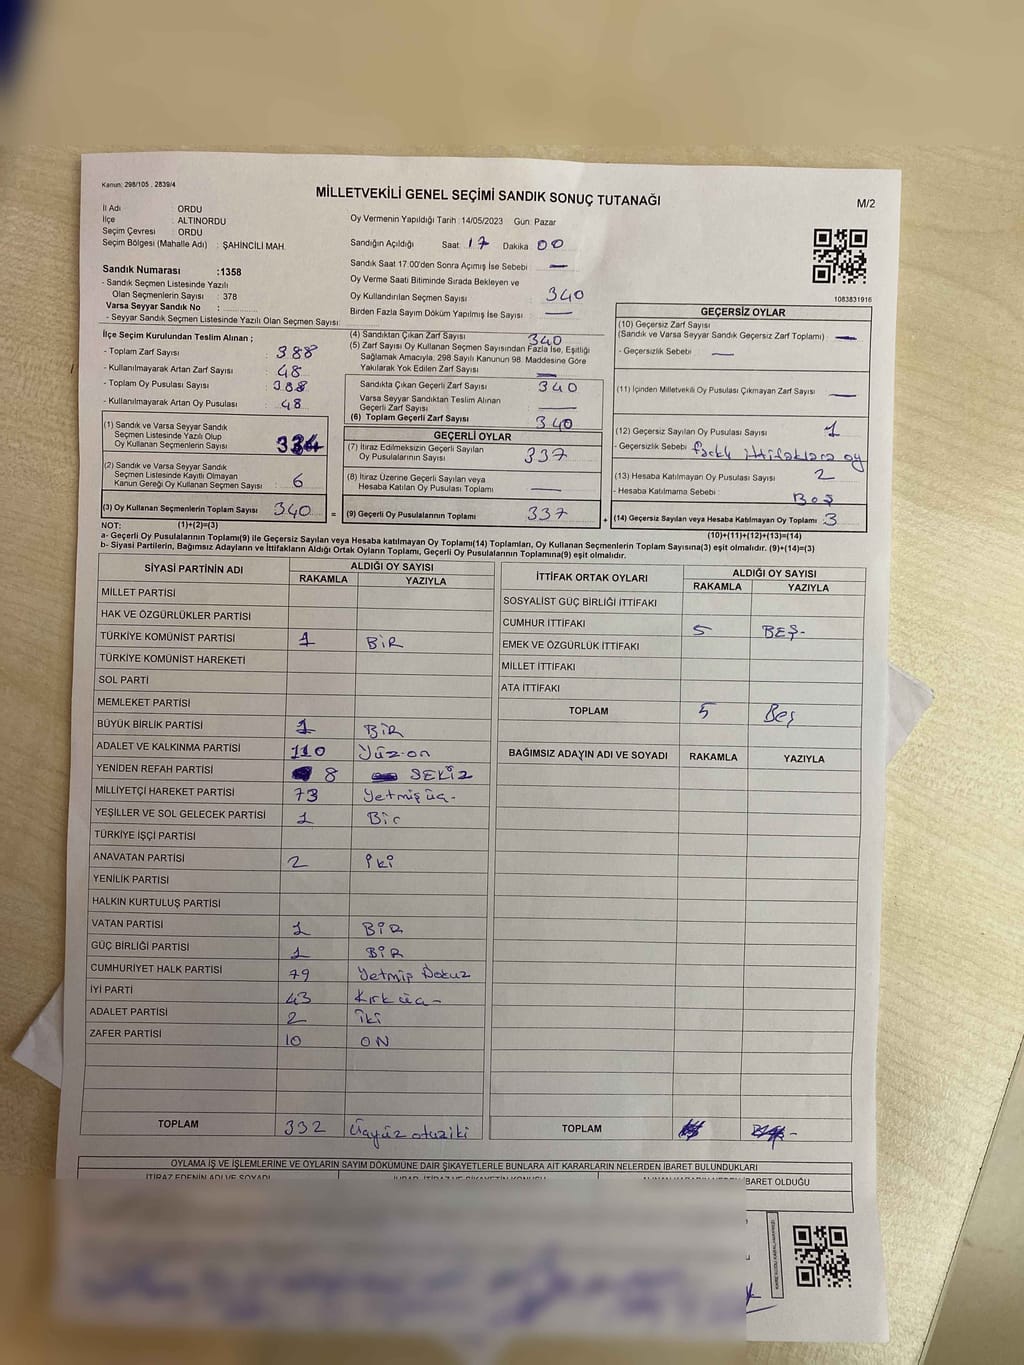 Kanun: 298/105 , 2839/4
MİLLETVEKİLİ GENEL SEÇİMİ SANDIK SONUÇ TUTANAĞI
M/2
İl Adı : ORDU
İlçe : ALTINORDU
Seçim Çevresi : ORDU
Seçim Bölgesi (Mahalle Adı) : ŞAHİNCİLİ MAH.
Sandık Numarası :1358
- Sandık Seçmen Listesinde Yazılı
Olan Seçmenlerin Sayısı : 378
Varsa Seyyar Sandık No :
- Seyyar Sandık Seçmen Listesinde Yazılı Olan Seçmen Sayısı:
Oy Vermenin Yapıldığı Tarih :14/05/2023 Gün: Pazar
Sandığın Açıldığı Saat: 17 Dakika 00
Sandık Saat 17.00'den Sonra Açımış İse Sebebi —
Oy Verme Saati Bitiminde Sırada Bekleyen ve
Oy Kullandırılan Seçmen Sayısı 340
Birden Fazla Sayım Döküm Yapılmış İse Sayısı —
1083831916
İlçe Seçim Kurulundan Teslim Alınan ;
- Toplam Zarf Sayısı : 388
- Kullanılmayarak Artan Zarf Sayısı : 48
- Toplam Oy Pusulası Sayısı : 388
- Kullanılmayarak Artan Oy Pusulası : 48
(1) Sandık ve Varsa Seyyar Sandık
Seçmen Listesinde Yazılı Olup
Oy Kullanan Seçmenlerin Sayısı 334
(2) Sandık ve Varsa Seyyar Sandık
Seçmen Listesinde Kayıtlı Olmayan
Kanun Gereği Oy Kullanan Seçmen Sayısı 6
(3) Oy Kullanan Seçmenlerin Toplam Sayısı 340 =
(4) Sandıktan Çıkan Zarf Sayısı 340
(5) Zarf Sayısı Oy Kullanan Seçmen Sayısından Fazla İse, Eşitliği
Sağlamak Amacıyla; 298 Sayılı Kanunun 98. Maddesine Göre
Yakılarak Yok Edilen Zarf Sayısı —
Sandıkta Çıkan Geçerli Zarf Sayısı 340
Varsa Seyyar Sandıktan Teslim Alınan
Geçerli Zarf Sayısı —
(6) Toplam Geçerli Zarf Sayısı 340
GEÇERLİ OYLAR
(7) İtiraz Edilmeksizin Geçerli Sayılan
Oy Pusulalarının Sayısı 337
(8) İtiraz Üzerine Geçerli Sayılan veya
Hesaba Katılan Oy Pusulası Toplamı —
(9) Geçerli Oy Pusulalarının Toplamı 337 +
GEÇERSİZ OYLAR
(10) Geçersiz Zarf Sayısı
(Sandık ve Varsa Seyyar Sandık Geçersiz Zarf Toplamı) : —
- Geçersizlik Sebebi : —
(11) İçinden Milletvekili Oy Pusulası Çıkmayan Zarf Sayısı : —
(12) Geçersiz Sayılan Oy Pusulası Sayısı : 1
- Geçersizlik Sebebi : farklı ittifaklara oy
(13) Hesaba Katılmayan Oy Pusulası Sayısı : 2
- Hesaba Katılmama Sebebi : Boş
(14) Geçersiz Sayılan veya Hesaba Katılmayan Oy Toplamı : 3
NOT: (1)+(2)=(3)
(10)+(11)+(12)+(13)=(14)
a- Geçerli Oy Pusulalarının Toplamı(9) ile Geçersiz Sayılan veya Hesaba katılmayan Oy Toplamı(14) Toplamları, Oy Kullanan Seçmenlerin Toplam Sayısına(3) eşit olmalıdır. (9)+(14)=(3)
b- Siyasi Partilerin, Bağımsız Adayların ve İttifakların Aldığı Ortak Oyların Toplamı, Geçerli Oy Pusulalarının Toplamına(9) eşit olmalıdır.
SİYASİ PARTİNİN ADI ALDIĞI OY SAYISI
RAKAMLA YAZIYLA
MİLLET PARTİSİ
HAK VE ÖZGÜRLÜKLER PARTİSİ
TÜRKİYE KOMÜNİST PARTİSİ 1 BİR
TÜRKİYE KOMÜNİST HAREKETİ
SOL PARTİ
MEMLEKET PARTİSİ
BÜYÜK BİRLİK PARTİSİ 1 BİR
ADALET VE KALKINMA PARTİSİ 110 Yüz on
YENİDEN REFAH PARTİSİ 8 SEKİZ
MİLLİYETÇİ HAREKET PARTİSİ 73 Yetmiş üç-
YEŞİLLER VE SOL GELECEK PARTİSİ 1 Bir
TÜRKİYE İŞÇİ PARTİSİ
ANAVATAN PARTİSİ 2 iki
YENİLİK PARTİSİ
HALKIN KURTULUŞ PARTİSİ
VATAN PARTİSİ 1 BİR
GÜÇ BİRLİĞİ PARTİSİ 1 BİR
CUMHURİYET HALK PARTİSİ 79 Yetmiş Dokuz
İYİ PARTİ 43 Kırk üç-
ADALET PARTİSİ 2 iki
ZAFER PARTİSİ 10 ON
TOPLAM 332 Üçyüz otuziki
İTTİFAK ORTAK OYLARI ALDIĞI OY SAYISI
RAKAMLA YAZIYLA
SOSYALİST GÜÇ BİRLİĞİ İTTİFAKI
CUMHUR İTTİFAKI 5 BEŞ-
EMEK VE ÖZGÜRLÜK İTTİFAKI
MİLLET İTTİFAKI
ATA İTTİFAKI
TOPLAM 5 Beş
BAĞIMSIZ ADAYIN ADI VE SOYADI RAKAMLA YAZIYLA
TOPLAM
OYLAMA İŞ VE İŞLEMLERİNE VE OYLARIN SAYIM DÖKÜMÜNE DAİR ŞİKAYETLERLE BUNLARA AİT KARARLARIN NELERDEN İBARET BULUNDUKLARI
İTİRAZ EDENİN ADI VE SOYADI
İBARET OLDUĞU